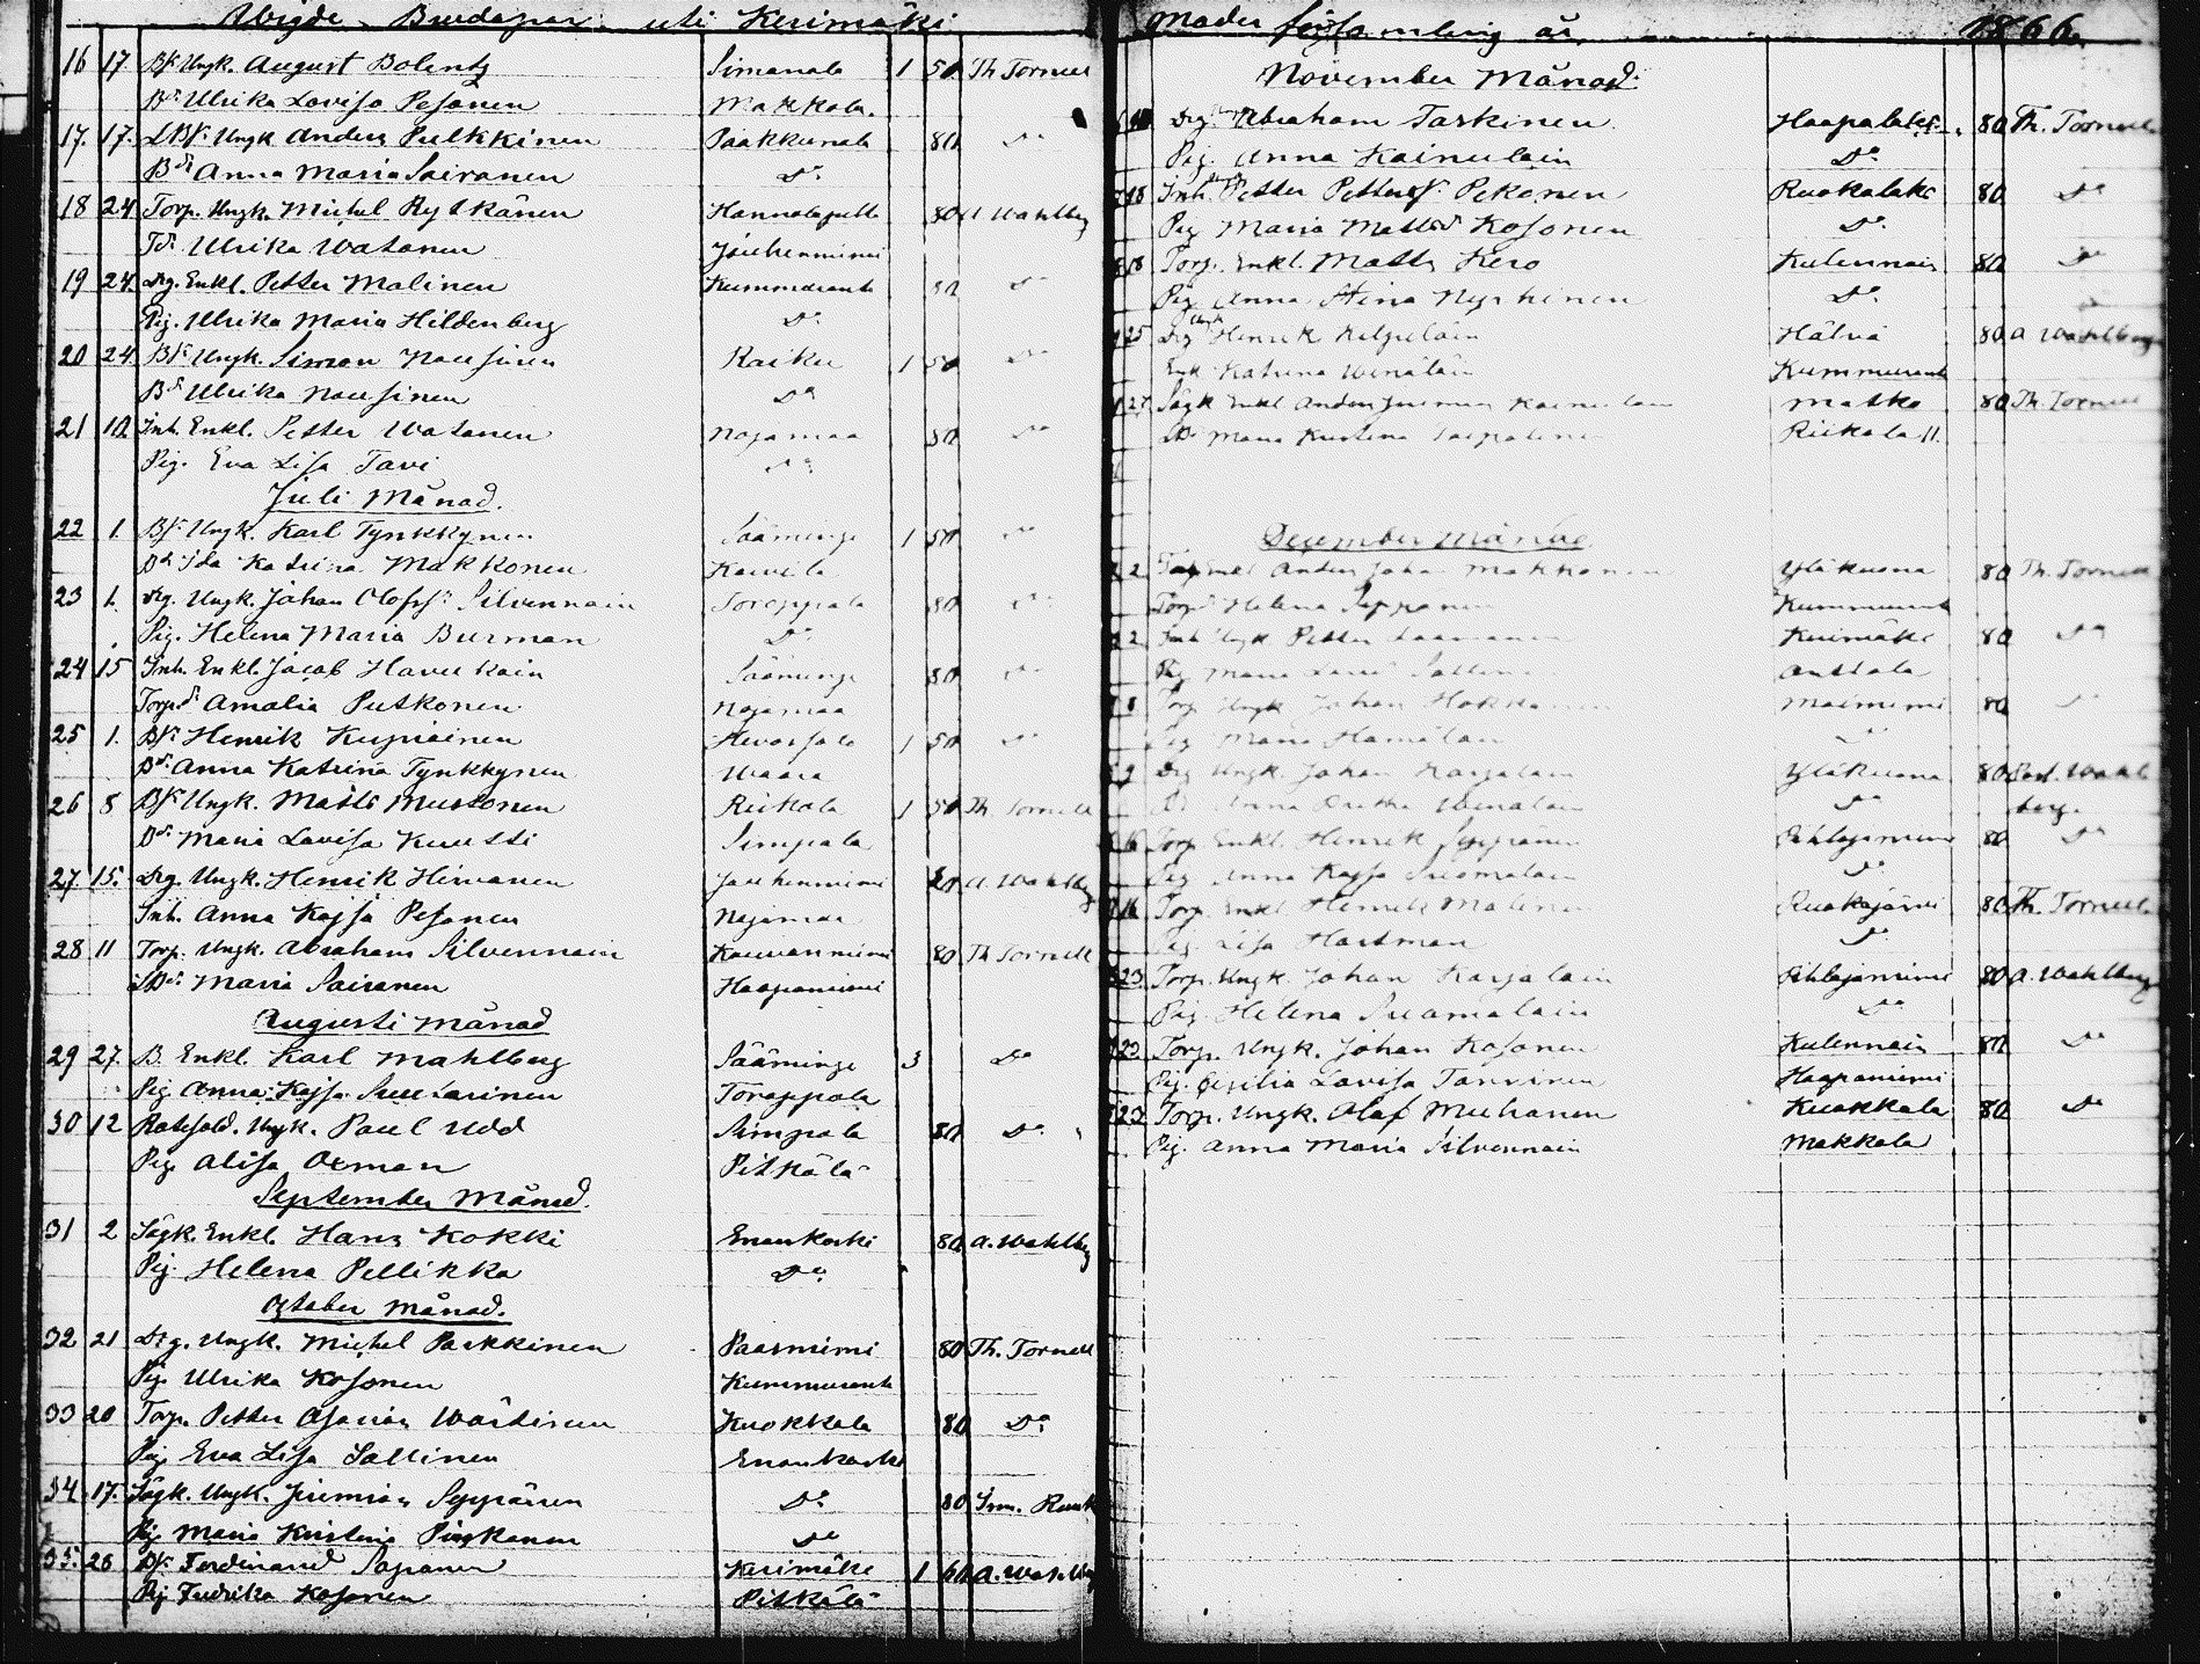 Wigde Brudapar uti Kerimäki
16 17 Bs. Ungk. August Bolentz Simanala 1 50 Th Tornell
Bdr Ulrika Lovisa Pesonen Makkola.
17. 17. Ungk Anders Pulkkinen Paakkunala 80 Do
Bdr Anna Maria Sairanen Do
18 24 Torp. Ungk. Michel Rytkönen Hannolapelto 80 A Wahlberg
Tdr Ulrika Watanen Jouhenniemi
19 24. Drg. Enkl. Petter Malinen Kummuranta 80 Do
Pig. Ulrika Maria Hildenberg Do
20 24. Bs. Ungk. Simon Nousinen Raiku 1 50 Do
Bdr Ulrika Nousinen Do
21 10 Inh. Enkl. Petter Watanen Nojamaa 80 Do
Pig. Eva Lisa Tavi Do
Juli Månad.
22 1 Bs. Ungk. Karl Tynkkynen Sääminge 1 50 Do
Bdr Ida Katrina Makkonen
23 1. Drg. Ungk. Johan Olofss. Silvennoin Toroppala 80 Do
Pig. Helena Maria Burman Do
24 15 Inh. Enkl. Jacob Haverkain Sääminge 80 Do
Torp.dr Amalia Putkonen Nojamaa
25 1. Bs. Henrik Kupiainen 1 50 Do
Bdr Anna Katrina Tynkkynen Waara
26 8 Bs. Ungk. Matts Mustonen Riikola 1 50 Th Tornell
Bdr Maria Lovisa Kuutti Simpala
27. 15. Drg. Ungk. Henrik Himanen Jouhenniemi 80 A. Wahlberg
Inh. Anna Kajsa Pesonen Nojamaa
28 11 Torp. Ungk. Abraham Silvennoin 80 Th Tornell
Maria Sairanen Haapaniemi
Augusti Månad
29 27. B. Enkl. Karl Mahlberg Sääminge 3 Do
Pig. Anna Kajsa Suutarinen Toroppala
30 12 Ungk. Paul Udd Simpala 80 Do
Pig. Alisa Oxman Pitkälä
September Månad.
31 2 Sågk. Enkl. Hans Kokki Enonkoski 80 A. Wahlberg
Pig. Helena Pellikka Do
October Månad.
32 21 Drg. Ungk. Michel Parkkinen Paasniemi 80 Th. Tornell
Pig. Ulrika Kosonen Kummuranta
33 20 Torp. Petter Asarias Wärtinen Kuokkala 80 Do
Pig. Eva Lisa Sallinen Enonkoski
34 17. Sågk. Ungk. Jeremias Seppänen Do 80
Pig Maria Kristina Pirskanen Do
35. 26 Bs. Ferdinand Kerimäki 1 60 A. Wahlberg
Pig Fredrika Kosonen Pitkälä
moder församling år 1866.
November Månad.
Drg. Ungk Abraham Tarkinen Haapalaks. 80 Th. Tornell
Pig. Anna Kainulain Do
18 Inh. Petter Petterss. Pekonen Ruokolaks 80 Do
Pig Maria Mattsd. Kosonen Do
18 Torp. Enkl. Matts Kero Kulennois 80 Do
Pig. Anna Stina Do
25 Drg Ungk Henrik Kilpeläin Hälvä 80 A Wahlberg
Enk Katrina Wenäläin Kummuranta
27. Sågk Enkl Anders Kainulain 80 Th Tornell
Maria Kristina Riikola 11.
December Månad
2 Anders Johan Makkonen Yläkuona 80 Th. Tornell
Torp.dr Helena Seppänen Kummuranta
2 Inh Ungk Petter Kerimäki 80 Do
Pig Maria Anttola
Torp Ungk Johan Hokkanen 80 Do
Pig Maria Hämäläin Do
9 Drg Ungk. Johan Karjalain Yläkuona 80 Past. Wahlberg
Anna Wenäläin Do
16 Torp Enkl. Henrik Seppänen Pihlajaniemi 80 Do
Pig Anna Kajsa Suomalain Do
16 Torp. Enkl Henrik Malinen Ruokojärvi 80 Th. Tornell
Pig. Lisa Hartman Do
23 Torp. Ungk. Johan Karjalain Pihlajaniemi 80 A. Wahlberg
Pig. Helena Suomalain Do
23 Torp. Ungk. Johan Kosonen Kulennois 80 Do
Pig. Cecilia Lovisa Tarvinen Haapaniemi
23 Torp. Ungk. Olof Muhonen Kuokkala 80 Do
Pig. Anna Maria Silvennoin Makkola